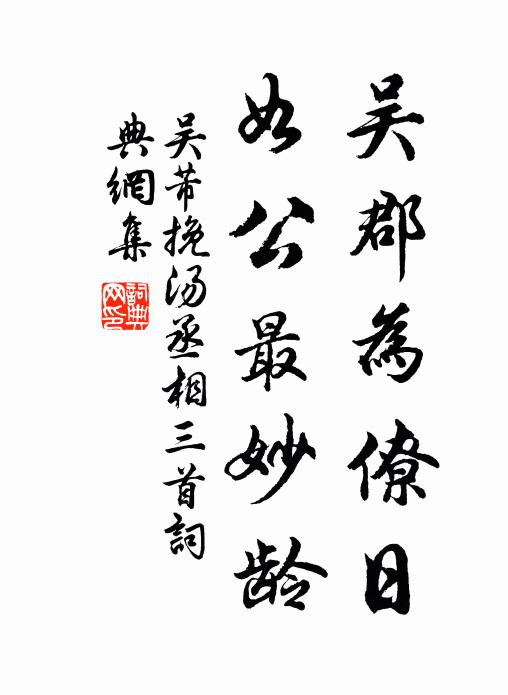 吴郡為僚日
如公最妙龄
吴芾挽汤丞相三首詞
典網集
詞典网印